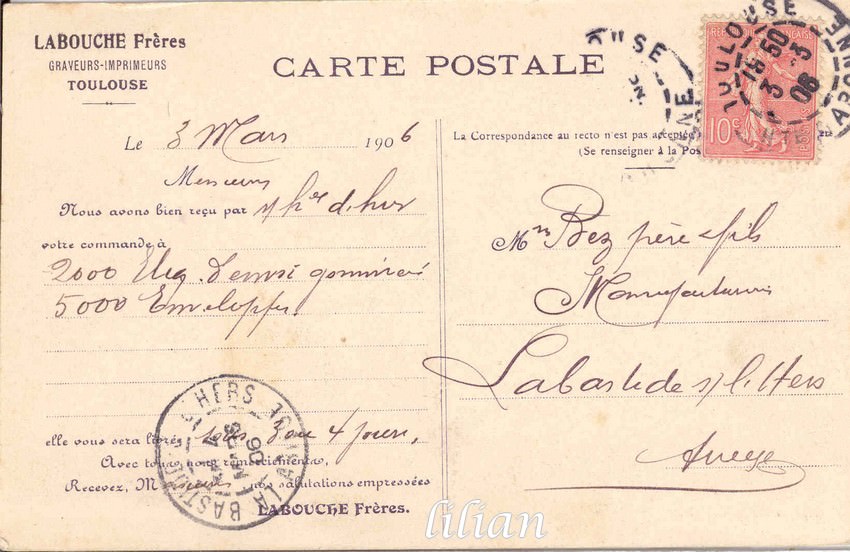 LABOUCHE Frères
GRAVEURS-IMPRIMEURS
TOULOUSE
CARTE POSTALE
Le 3 Mars 1906
Messieurs
Nous avons bien reçu par
votre commande à
2000 d'envoi
5000 Enveloppes
elle vous sera livrée sous 3 ou 4 jours,
Avec tous nos remerciements,
Recevez, Messieurs nos salutations empressées
LABOUCHE Frères.
La Correspondance au recto n'est pas acceptée
(Se renseigner à la Pos
Mrs Bez père & fils
Manufacturiers
Labastide s/ l'Hers
Ariege
TOULOUSE
18 50
3 3
06
RÉPUBLIQUE FRANÇAISE
10c
LA BASTIDE S L'HERS
06
lilian